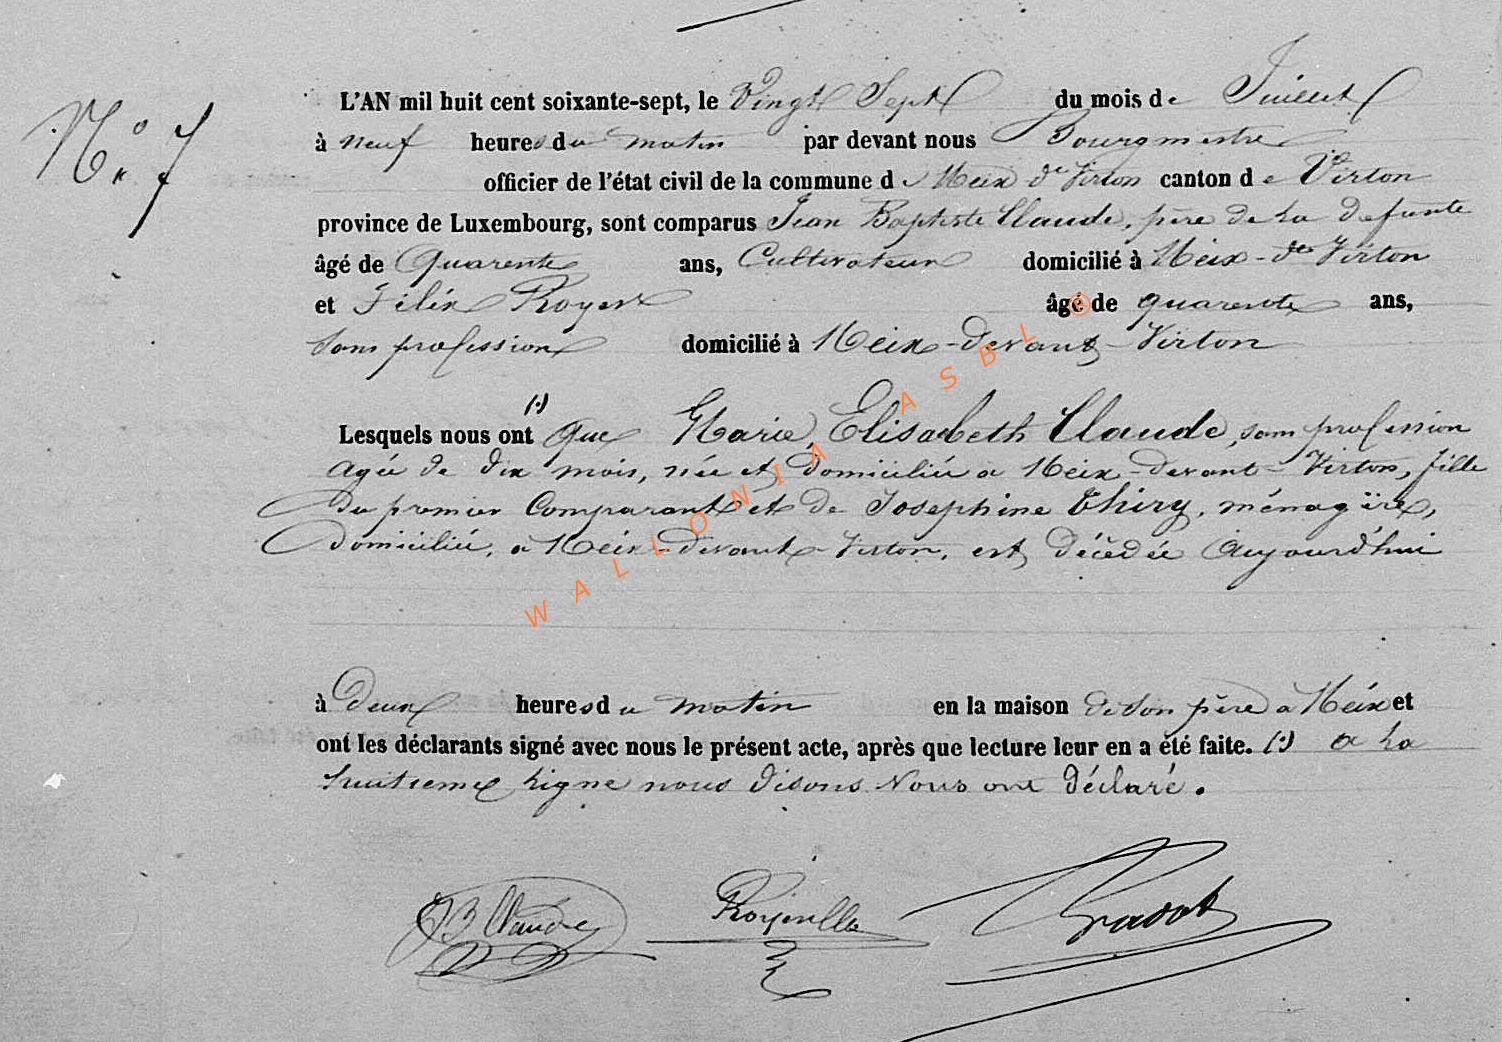 N.° 7
L'AN mil huit cent soixante-sept, le Vingt Sept du mois de Juillet
à neuf heures du matin par devant nous Bourgmestre
officier de l'état civil de la commune de Meix dt Virton canton de Virton
province de Luxembourg, sont comparus Jean Baptiste Claude, père de la defunte
âgé de Quarente ans, Cultivateur domicilié à Meix-dt Virton
et Félix Royer âgé de quarente ans,
Sans profession domicilié à Meix-devant-Virton
(.)
Lesquels nous ont que Marie, Elisabeth Claude, sans profession
agée de dix mois, née et domiciliée a Meix-devant-Virton, fille
du premier Comparant et de Josephine Thiry, ménagère,
Domiciliée, a Meix-devant-Virton, est décédée Aujourd'hui
à Deux heures du matin en la maison de son père a Meix et
ont les déclarants signé avec nous le présent acte, après que lecture leur en a été faite. (.) a la
huitieme ligne nous disons Nous ont déclaré.
JB Claude
WALLONIA ASBL ©